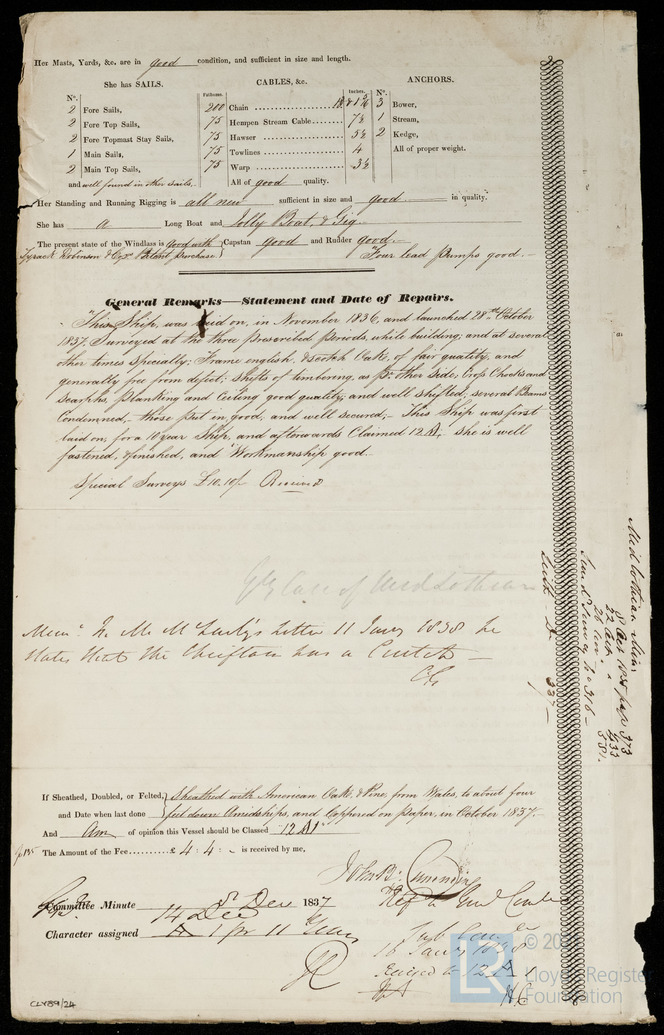 Her Masts, Yards, &c. are in good condition, and sufficient in size and length.
She has SAILS. CABLES, &c. ANCHORS.
N°. Fathoms. Inches. N°.
2 Fore Sails, 200 Chain 3 Bower,
2 Fore Top Sails, 75 Hempen Stream Cable 7½ 1 Stream,
2 Fore Topmast Stay Sails, 75 Hawser 5½ 2 Kedge,
1 Main Sails, 75 Towlines 4 All of proper weight.
2 Main Top Sails, 75 Warp 3½
and well found in other sails. All of good quality.
Her Standing and Running Rigging is all new sufficient in size and good in quality.
She has a Long Boat and Jolly Boat, & Gig
The present state of the Windlass is good with Capstan good and Rudder good
Tyrack Robinson & Co.s Patent purchase Four lead pumps good.
General Remarks—Statement and Date of Repairs.
This Ship, was laid on, in November 1836, and launched 28th October
1837. Surveyed at the three prescribed periods, while building; and at several
other times specially; Frame english, & scotch Oak, of fair quality, and
generally free from defect; shifts of timbering, as pr. other side, Cross Chocks and
Scarphs, planking and Ceiling good quality, and well shifted; several Beams
Condemned, those put in, good, and well secured,— This Ship was first
laid on, for a 10 year Ship, and afterwards Claimed 12 A1, she is well
fastened, & finished, and Workmanship good.
Special Surveys £10.10/- Received
Case of Midlothian
Mem° In Mr. letter 11 Jany 1838 he
states that the Chieftan has a Cutch —
CG
If Sheathed, Doubled, or Felted, Sheathed with American Oak & Pine, from Wales, to about four
and Date when last done feet down Amidships, and Coppered on Paper, in October 1837.
And Am of opinion this Vessel should be Classed 12 A1
The Amount of the Fee £ 4 : 4 : - is received by me,
John B. Cumming
Committee Minute 5 Dec 1837
14 Dec
Character assigned A 1 for 11 Years
16 Jany 1838
12 A 1
Midlothian
8 Oct 373
22 433
26 Nov 581
No 316
337
CLY89/24
LR
© 20
Lloyd's Register
Foundation